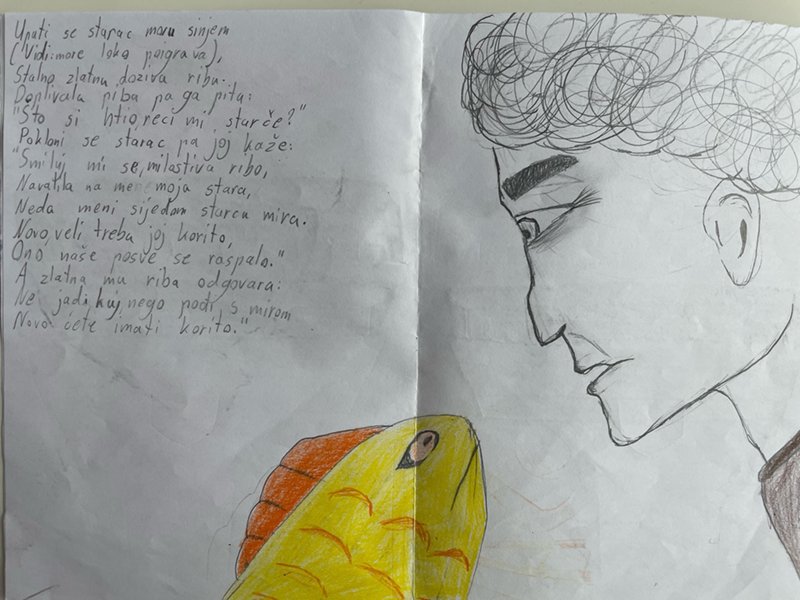 Uputi se starac moru sinjem
(Vidi:more lako poigrava),
Stalno zlatnu doziva ribu.
Doplivala riba pa ga pita:
"Što si htio reći mi starče?"
Pokloni se starac pa joj kaže:
"Smiluj mi se, milostiva ribo,
Navatila na me moja stara,
Neda meni sijedom starcu mira.
Novo, veli treba joj korito,
Ono naše posve se raspalo."
A zlatna mu riba odgovara:
Ne jadikuj nego pođi s mirom
Novo ćete imati korito."